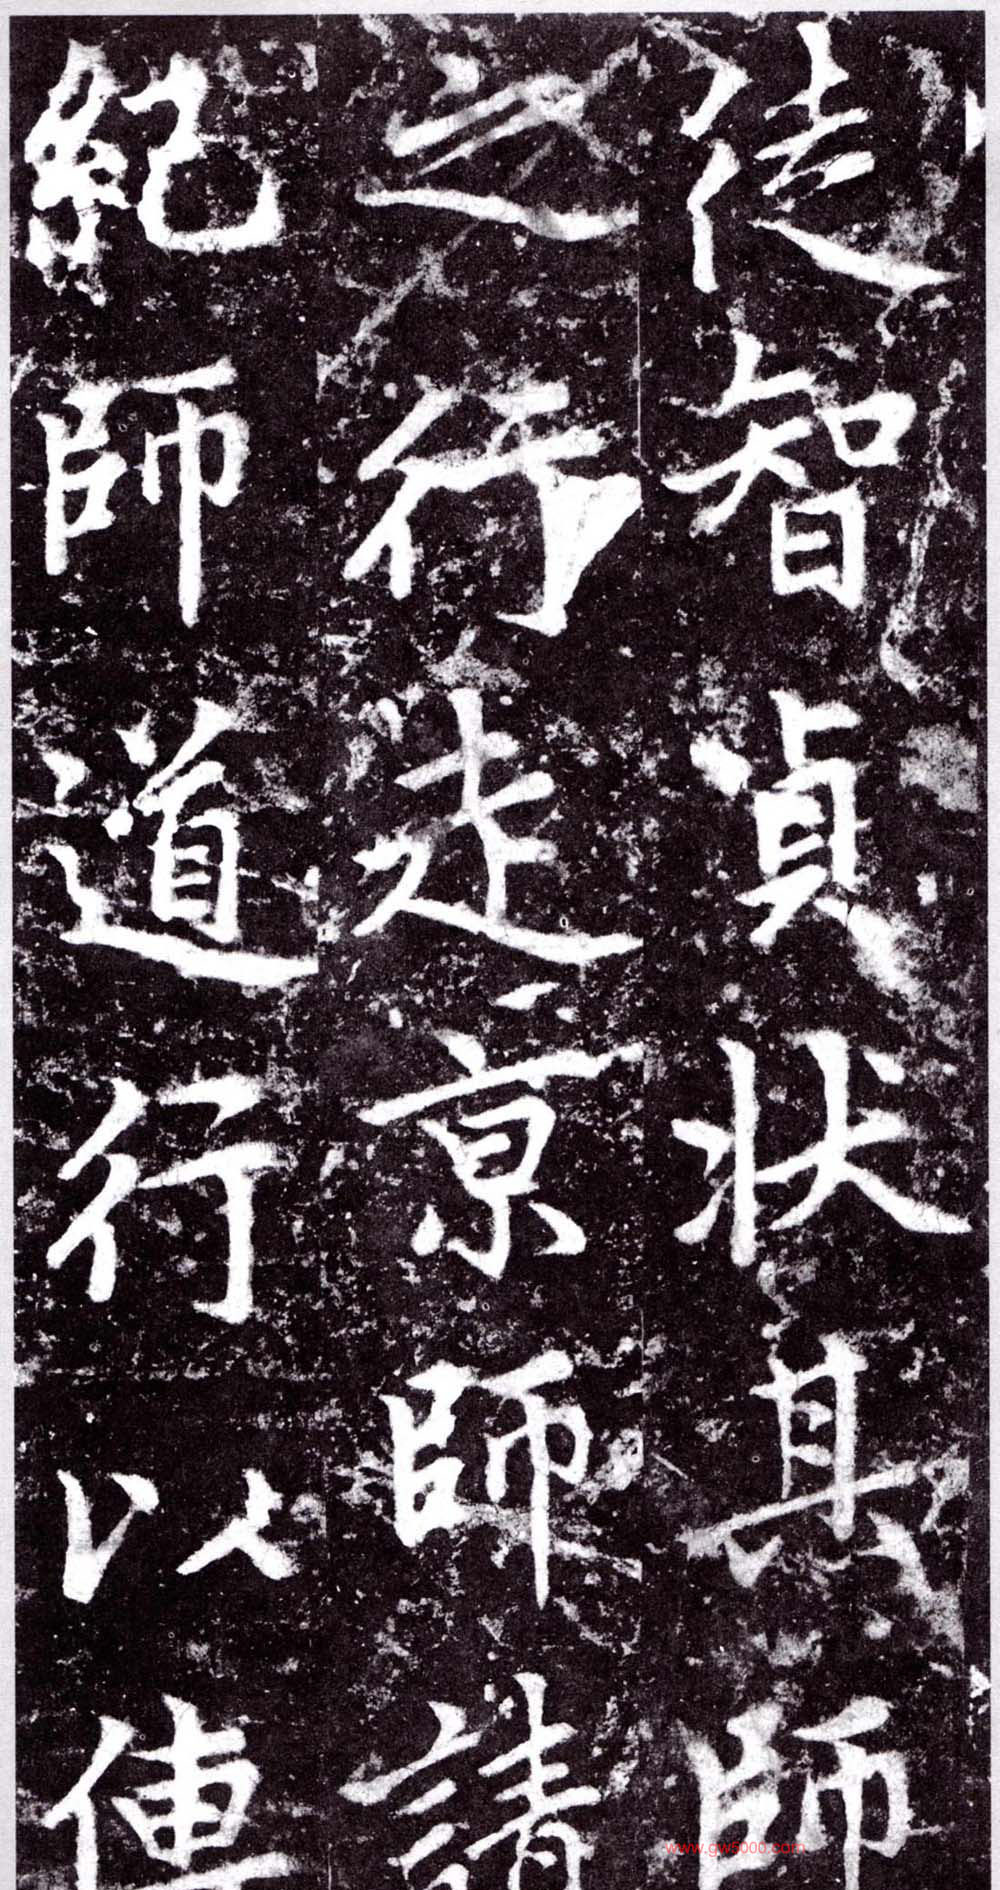 徒智貞狀其師
之行走京師請
紀師道行以傳
www.gw5000.com